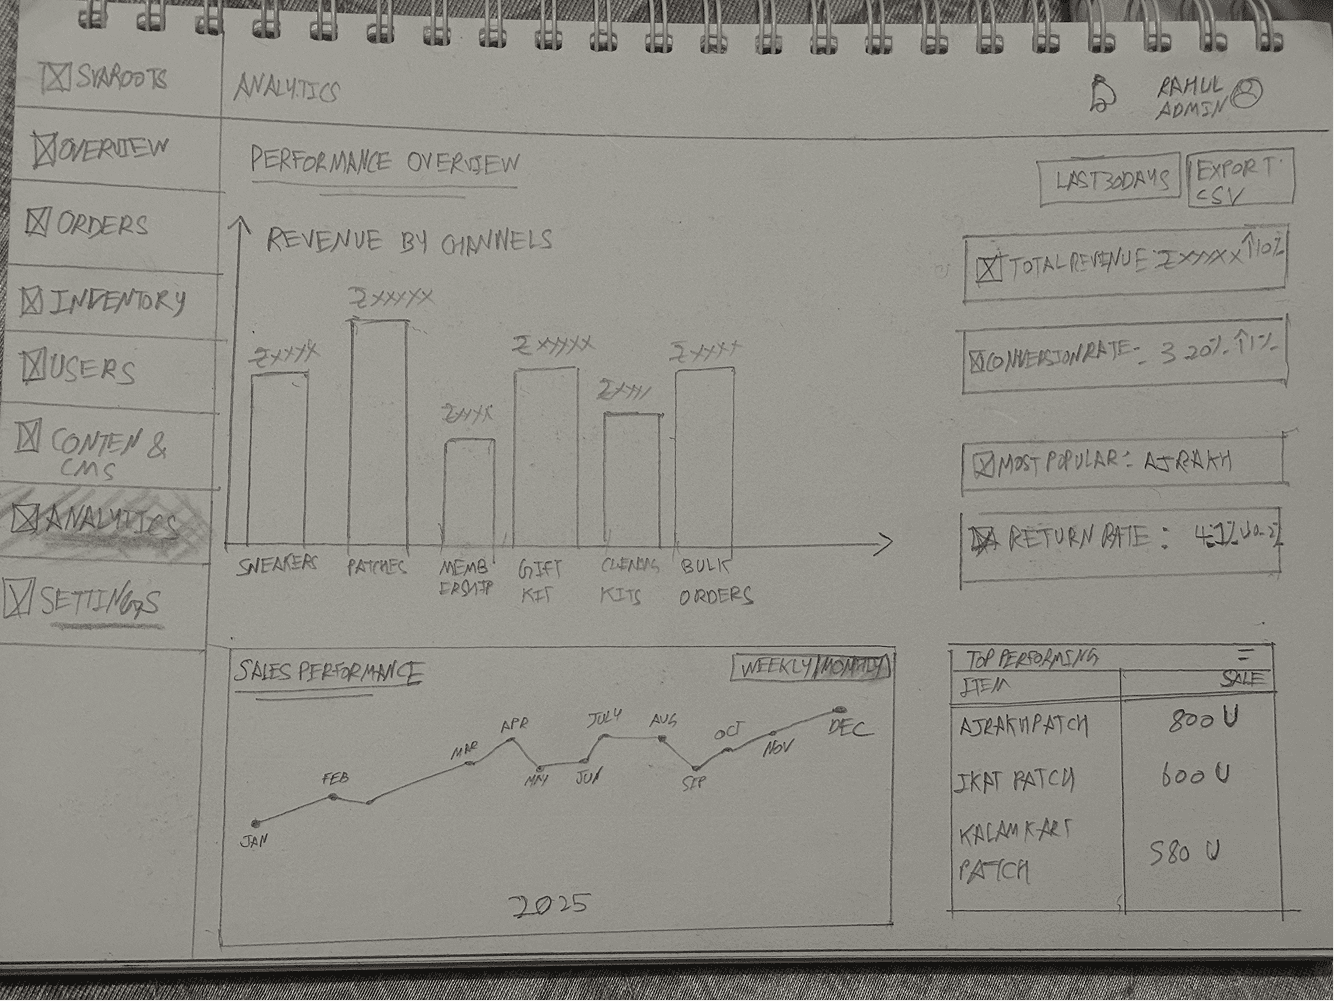 SVAROOTS
ANALYTICS
RAHUL
ADMIN
OVERVIEW
ORDERS
INVENTORY
USERS
CONTEN &
CMS
ANALYTICS
SETTINGS
PERFORMANCE OVERVIEW
LAST 30 DAYS
EXPORT
CSV
REVENUE BY CHANNELS
₹XXXX
₹XXXXX
₹XXXX
₹XXXXX
₹XXXX
₹XXXX
SNEAKERS
PATCHES
MEMB
ERSHIP
GIFT
KIT
KITS
BULK
ORDERS
TOTAL REVENUE: ₹XXXXX ↑10%
CONVERSION RATE - 3.20% ↑1%
MOST POPULAR: AJRAKH
RETURN RATE : 4.1% ↓0.2%
SALES PERFORMANCE
WEEKLY/MONTHLY
JAN
FEB
MAR
APR
MAY
JUN
JULY
AUG
SEP
OCT
NOV
DEC
2025
TOP PERFORMING
ITEM SALE
AJRAKH PATCH 800 U
IKAT PATCH 600 U
KALAMKARI
PATCH 580 U